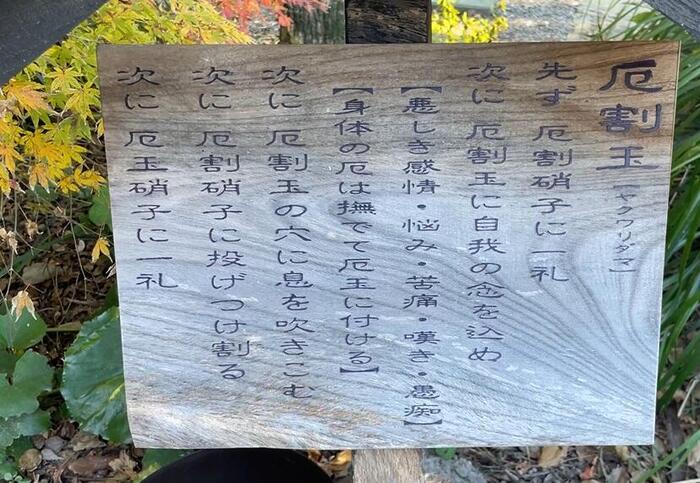 厄割玉【ヤクワリダマ】
先ず 厄割硝子に一礼
次に 厄割玉に自我の念を込め
【悪しき感情・悩み・苦痛・嘆き・愚痴】
【身体の厄は撫でて厄玉に付ける】
次に 厄割玉の穴に息を吹きこむ
次に 厄割硝子に投げつけ割る
次に 厄玉硝子に一礼